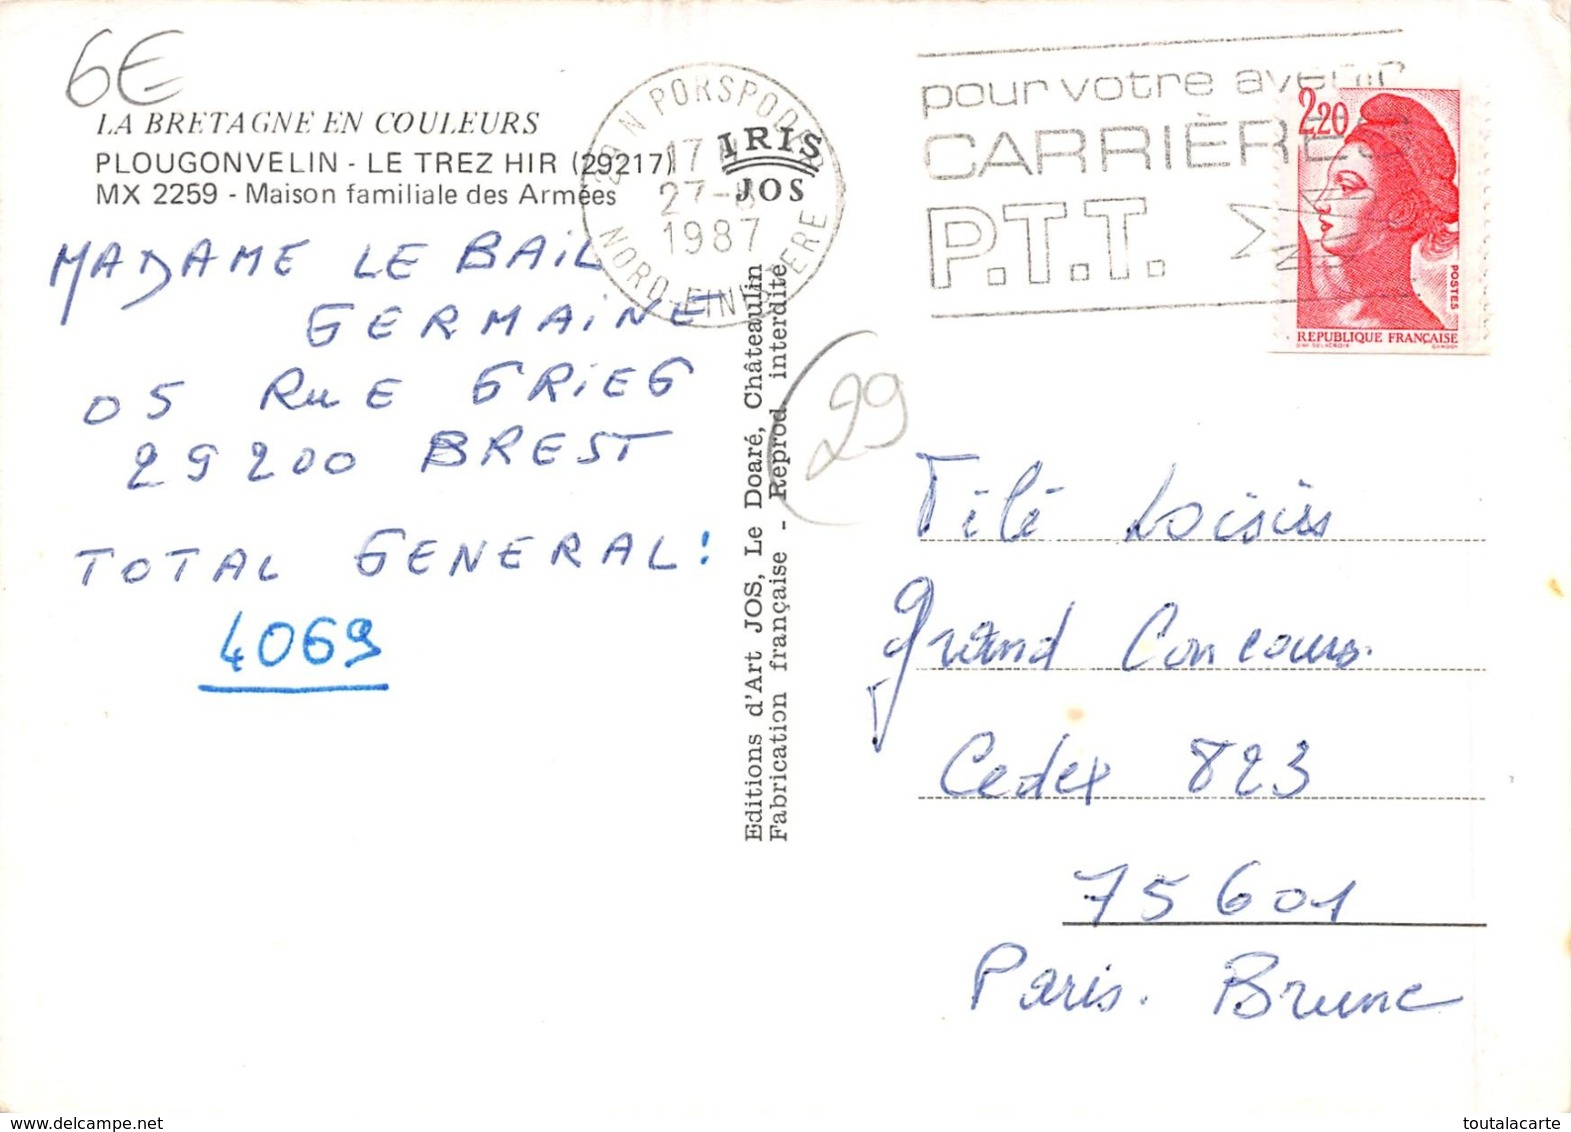 6€
LA BRETAGNE EN COULEURS
PLOUGONVELIN - LE TREZ HIR (29217)
MX 2259 - Maison familiale des Armées
MADAME LE BAIL
GERMAINE
05 RUE GRIEG
29200 BREST
TOTAL GENERAL :
4069
29 N PORSPODER
17 H
1987
NORD-FINISTERE
IRIS
JOS
Editions d'Art JOS, Le Doaré, Châteaulin
Fabrication française - Reprod. interdite
29
pour votre avenir
CARRIÈRES
P.T.T.
2,20
POSTES
REPUBLIQUE FRANÇAISE
D'AP. DELACROIX GANDON
Télé Loisirs
Grand Concours.
Cedex 823
75601
Paris. Brune
toutalacarte